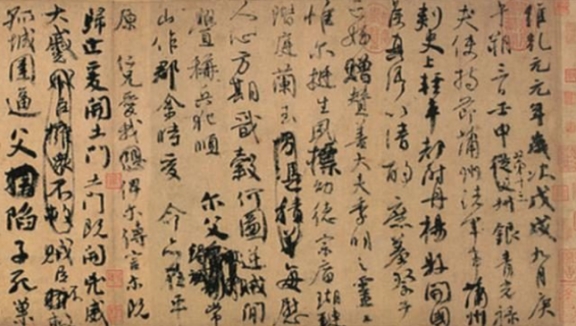 維乾元元年歲次戊戌九月庚
午朔三日壬申第十三從父叔銀青光祿
夫使持節蒲州諸軍事蒲州
刺史上輕車都尉丹楊縣開國
侯真卿以清酌庶羞祭于
亡姪贈贊善大夫季明之靈曰
惟爾挺生夙標幼德宗廟瑚璉
階庭蘭玉方憑積善每慰
人心方期戩穀何圖逆賊閒
釁稱兵犯順爾父竭誠常
山作郡余時受命亦在平
原仁兄愛我俾爾傳言爾既
歸止爰開土門土門既開凶威
大蹙賊臣擁眾不救賊臣
孤城圍逼父陷子死巢